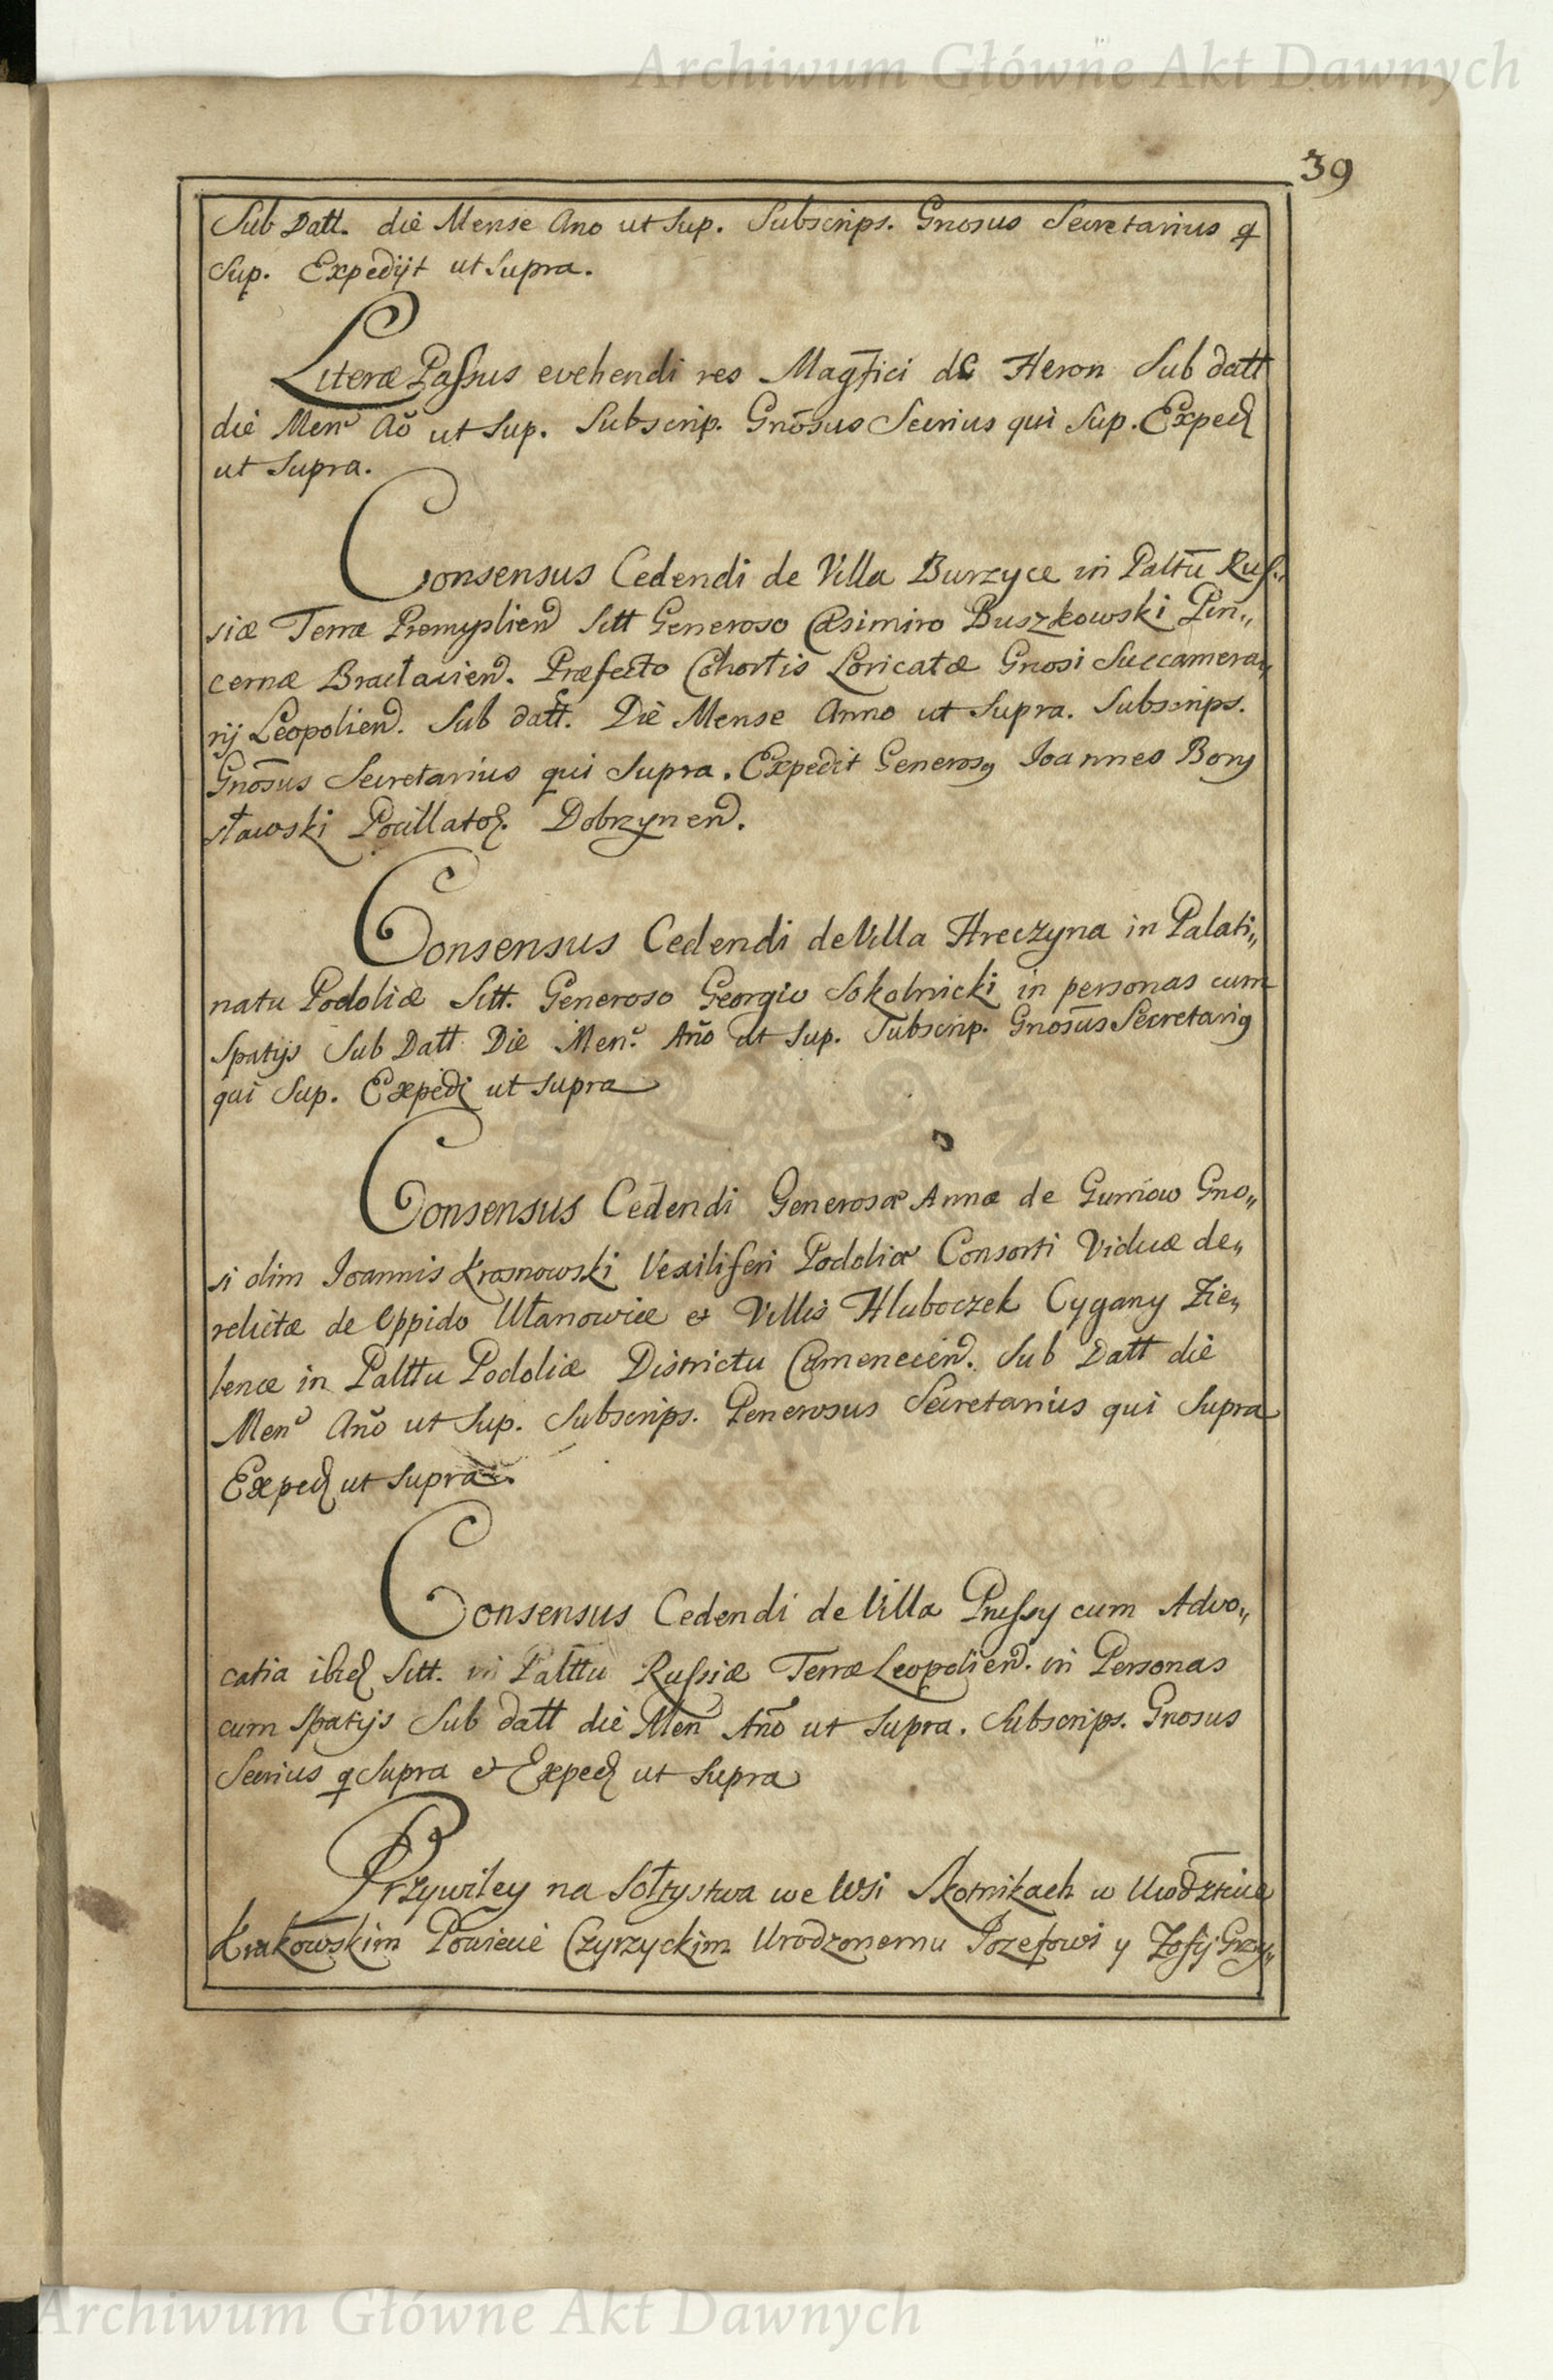 Archiwum Główne Akt Dawnych
39
Sub Datt. die Mense Ano ut Sup. Subscrips. Gnosus Secretarius q
Sup. Expedijt ut Supra.
Literæ Passus evehendi res Magfici de Heron Sub datt
die Men Ao ut Sup. Subscrip. Gnosus Secrius qui Sup. Exped
ut Supra.
Consensus Cedendi de Villa Burzyce in Paltu Rus„
siæ Terræ Premyslien Sitt Generoso Casimiro Buszkowski Pin„
cernæ Braclavien. Præfecto Cohortis Loricatæ Gnosi Succamera„
rij Leopolien. Sub datt. Die Mense Anno ut Supra. Subscrips.
Gnosus Secretarius qui Supra. Expedit Generosq Joannes Bory
sławski Pocillator. Dobrzynen.
Consensus Cedendi de Villa Hreczyna in Palati„
natu Podoliæ Sitt. Generoso Georgio Sokolnicki in personas cum
Spatijs Sub Datt Die Men. Ano ut Sup. Subscrip. Gnosus Secretarig
qui Sup. Expedi ut Supra
Consensus Cedendi Generosæ Annæ de Gumow Gno„
si olim Joannis Krosnowski Vexiliferi Podoliæ Consorti Viduæ de„
relictæ de Oppido Ułanowice et Villis Hluboczek Cygany Zie„
lence in Palttu Podoliæ Districtu Camenecien. Sub Datt die
Men Ano ut Sup. Subscrips. Generosus Secretarius qui Supra
Exped ut Supra.
Consensus Cedendi de Villa Prussy cum Advo„
catia ibid Sitt. in Palttu Russiæ Terræ Leopolien. in Personas
cum Spatijs Sub datt die Men Ano ut Supra. Subscrips. Gnosus
Secrius q Supra et Exped ut Supra
Przywiley na Sołtystwa we Wsi Skotnikach w Wodztwie
Krakowskim Powiecie Czyrzyckim Urodzonemu Jozefowi y Zofij Grzy„
Archiwum Główne Akt Dawnych